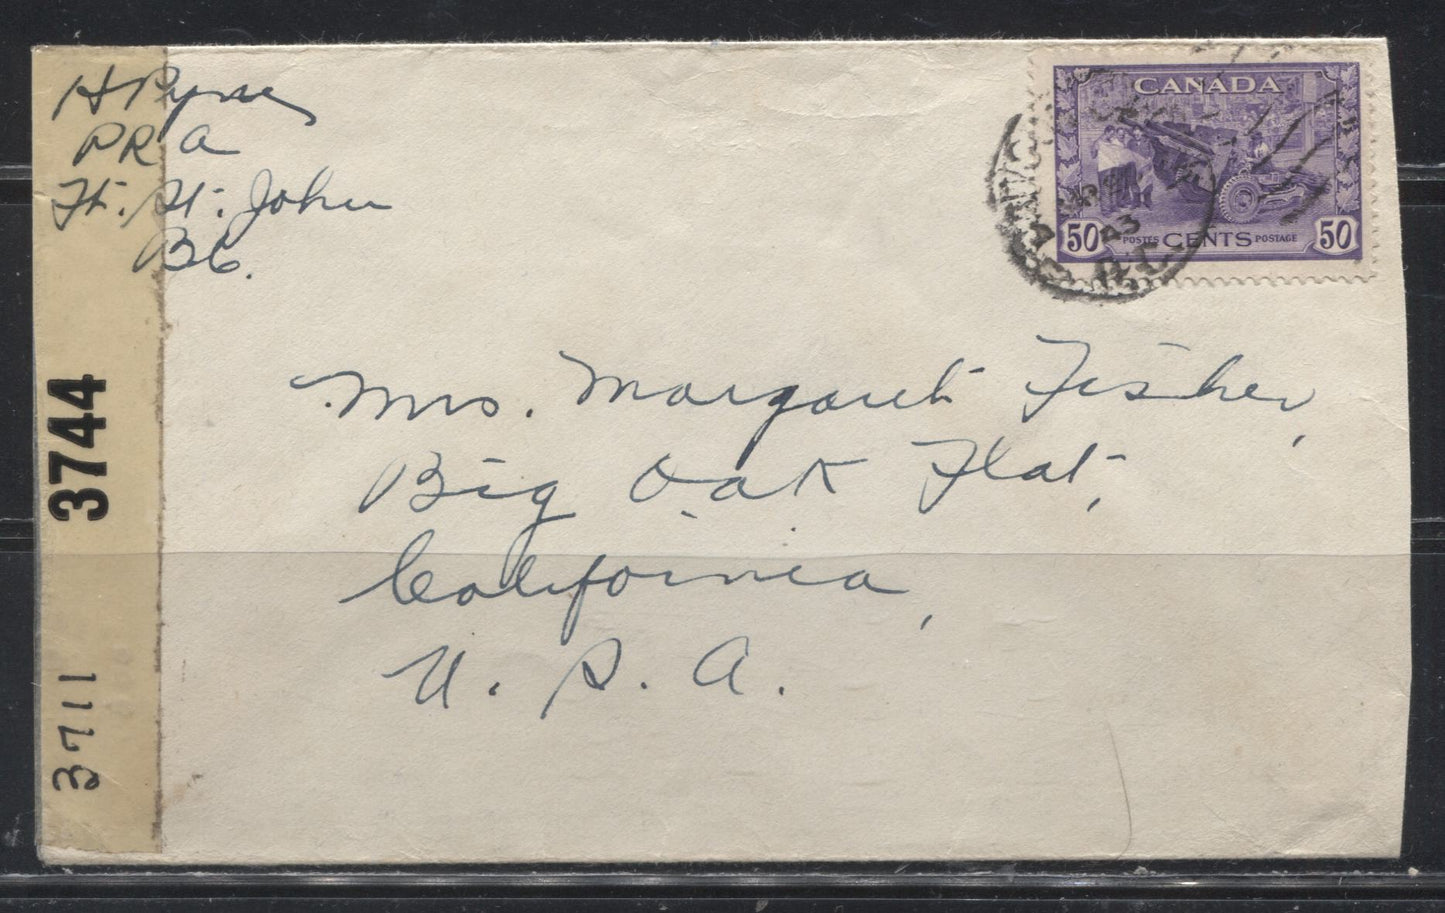 H Pyne
PRA
Ft. St. John
BC.
CANADA
50 POSTES CENTS POSTAGE 50
43
Mrs. Margaret Fisher,
Big Oak Flat,
California,
U. S. A.
3744
3711